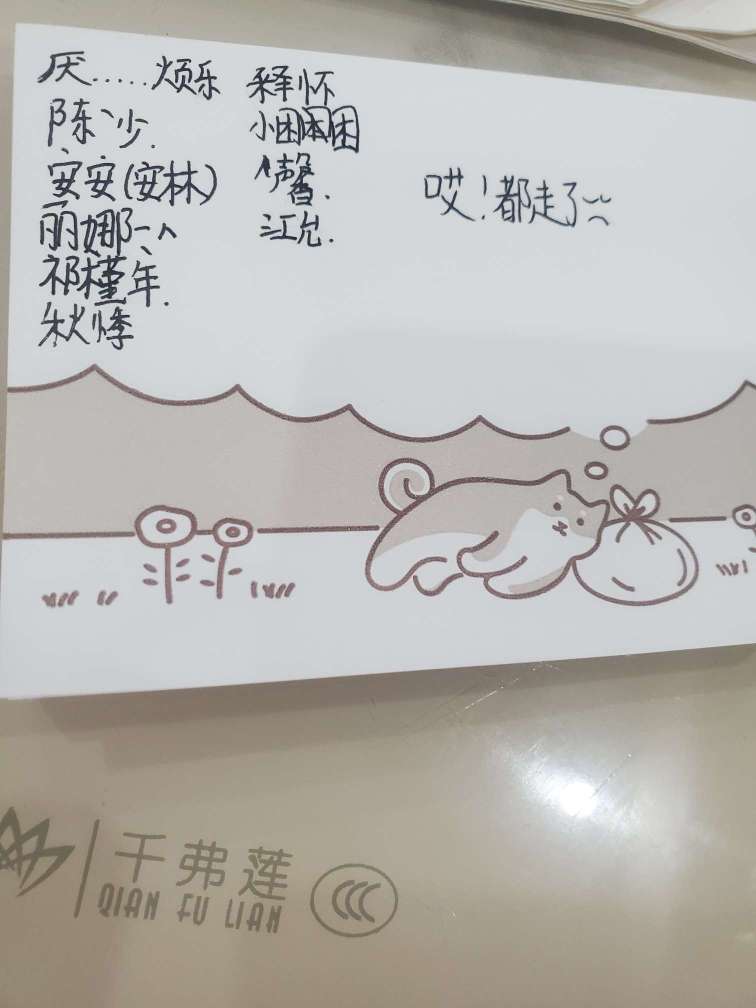 厌.....烦乐
陈少.
安安(安林)
丽娜
祁槿年.
秋悸
释怀
小困困困
馨.
江允.
哎!都走了
千弗莲
QIAN FU LIAN